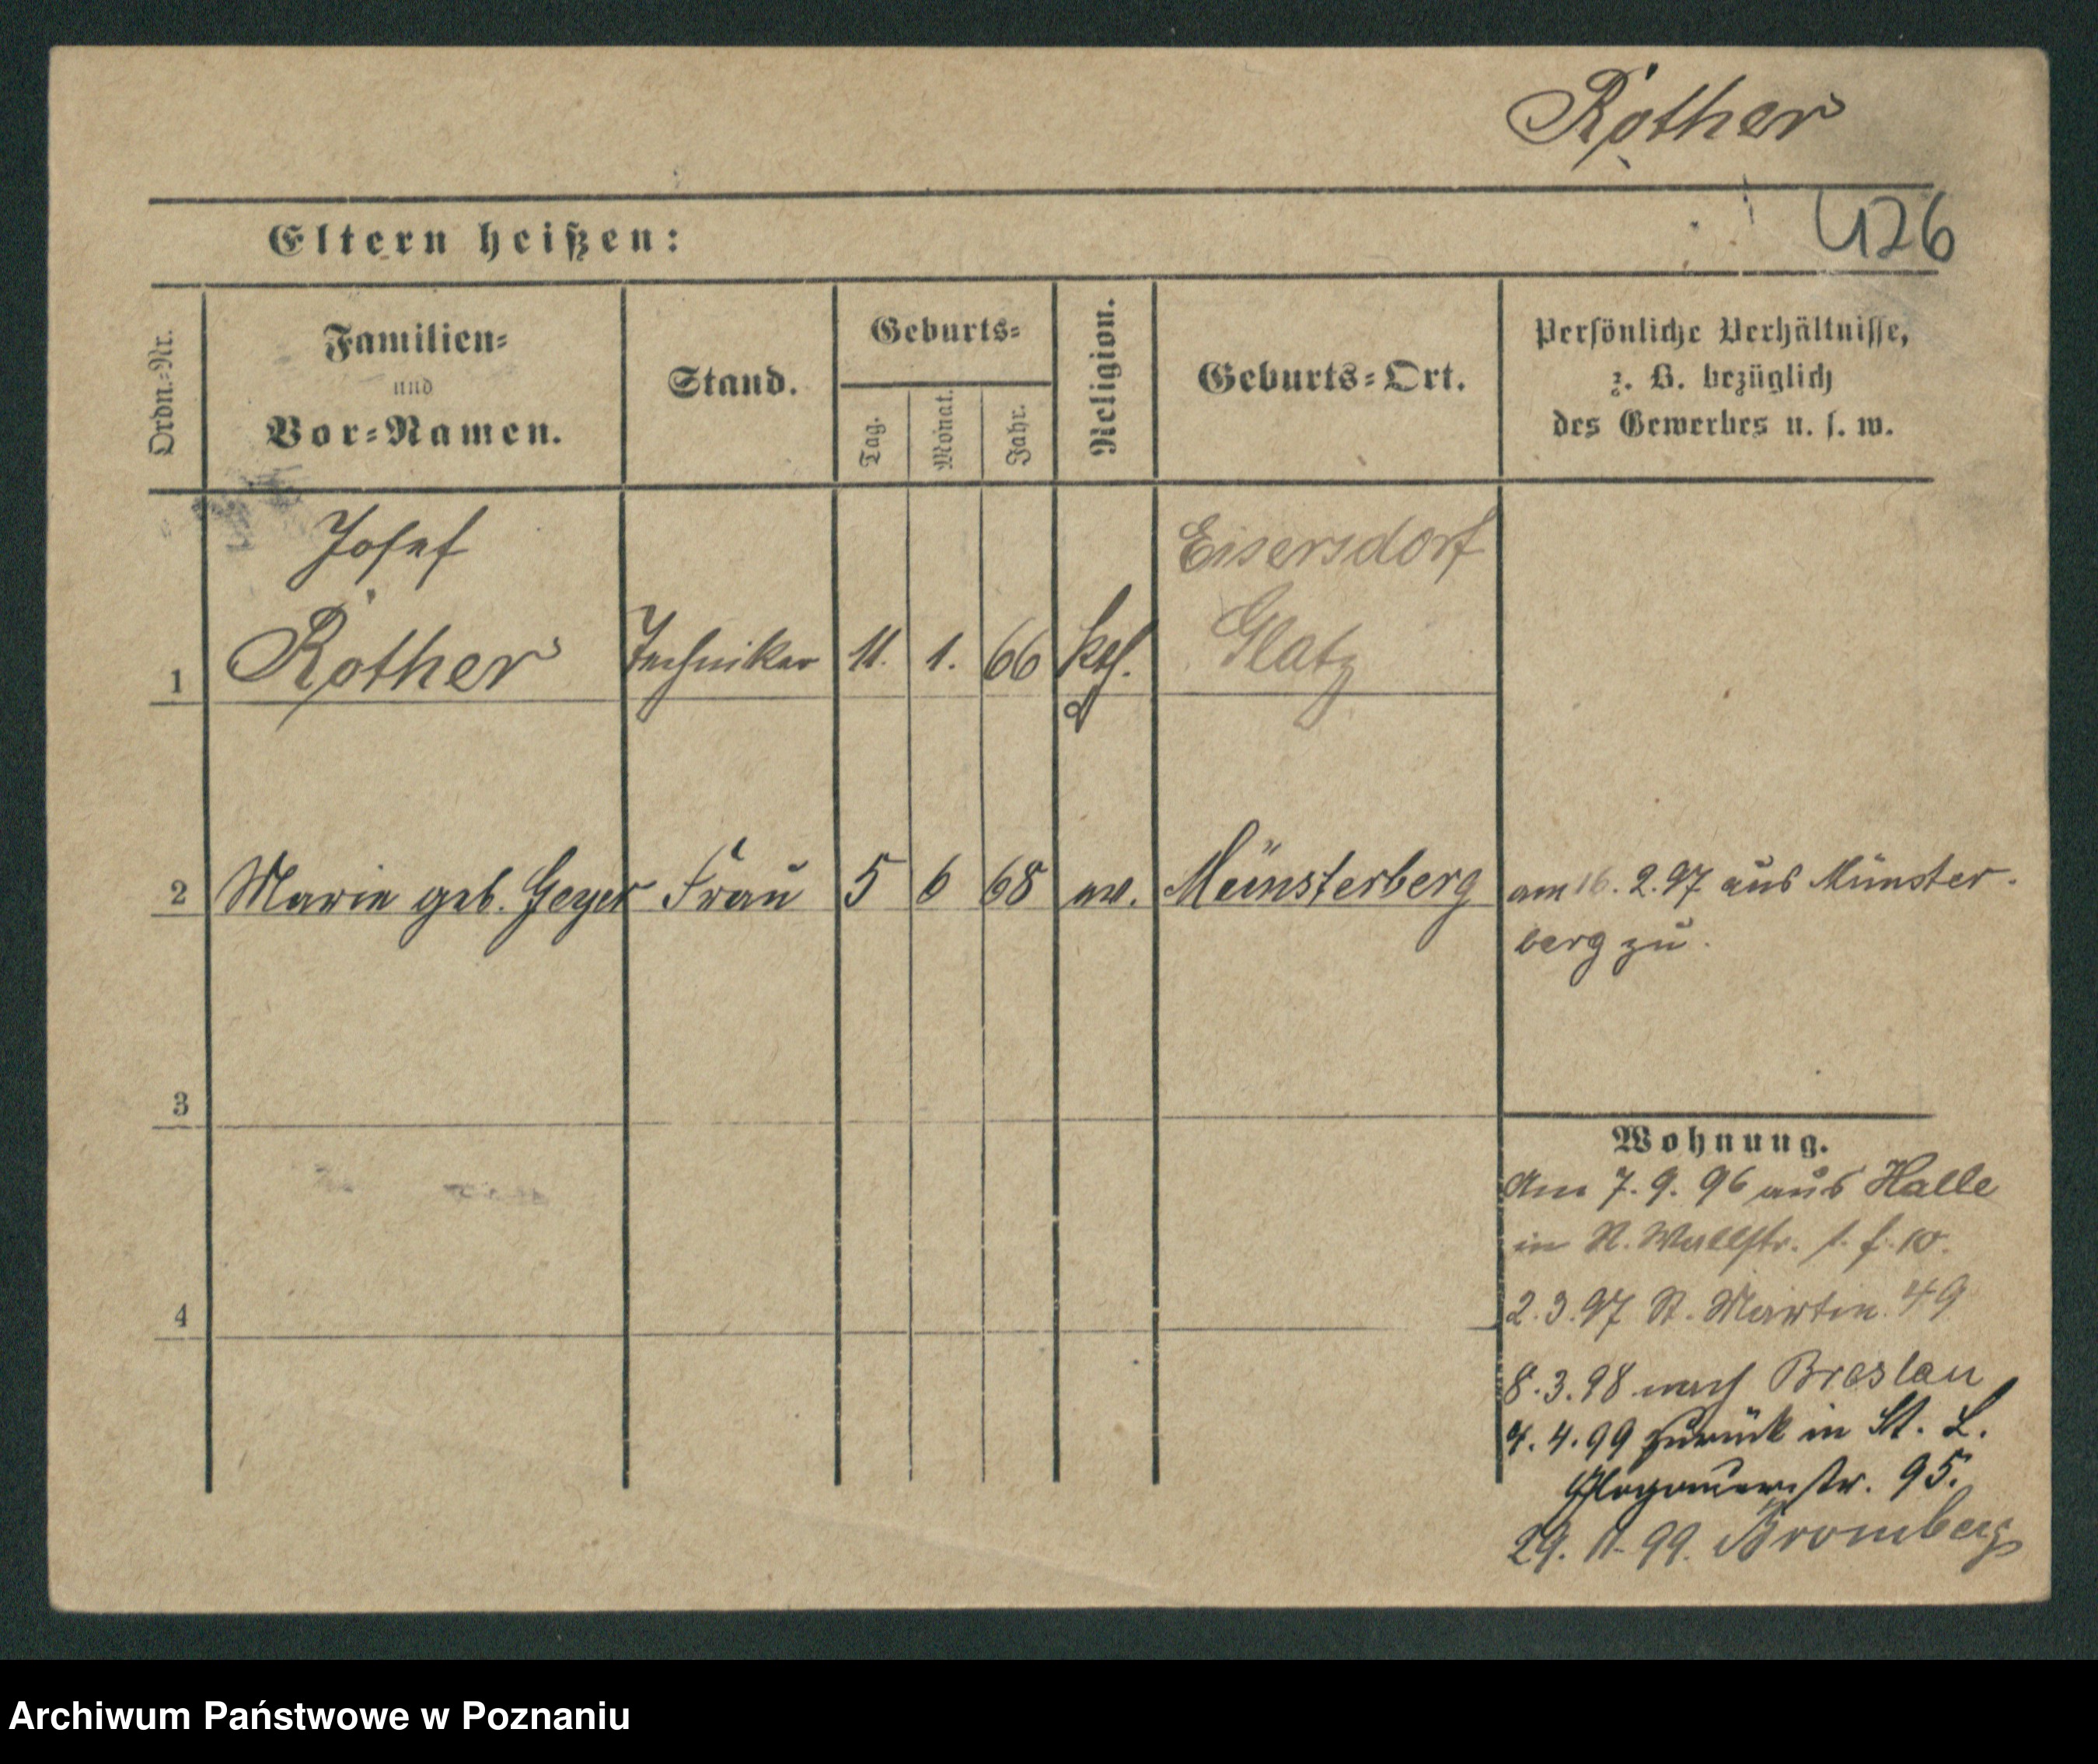 Rother
426
Eltern heißen:
Ordn.=Nr.
Familien=
und
Vor=Namen.
Stand.
Geburts=
Tag.
Monat.
Jahr.
Religion.
Geburts=Ort.
Persönliche Verhältnisse,
z. B. bezüglich
des Gewerbes u. s. w.
Josef
Rother
1
Techniker
11. 1. 66
kth.
Eisersdorf
Glatz
2 Marie geb. Geyer Frau 5 6 68 ev. Münsterberg
am 16. 2. 97 aus Münster-
berg zu.
3
Wohnung.
Am 7. 9. 96 aus Halle
in St. Wallstr. 1. f. 10.
4
2. 3. 97 St. Martin 49
8. 3. 98 nach Breslau
4. 4. 99 zurück in St. L.
Glogauerstr. 95.
29. 11. 99. Bromberg
Archiwum Państwowe w Poznaniu